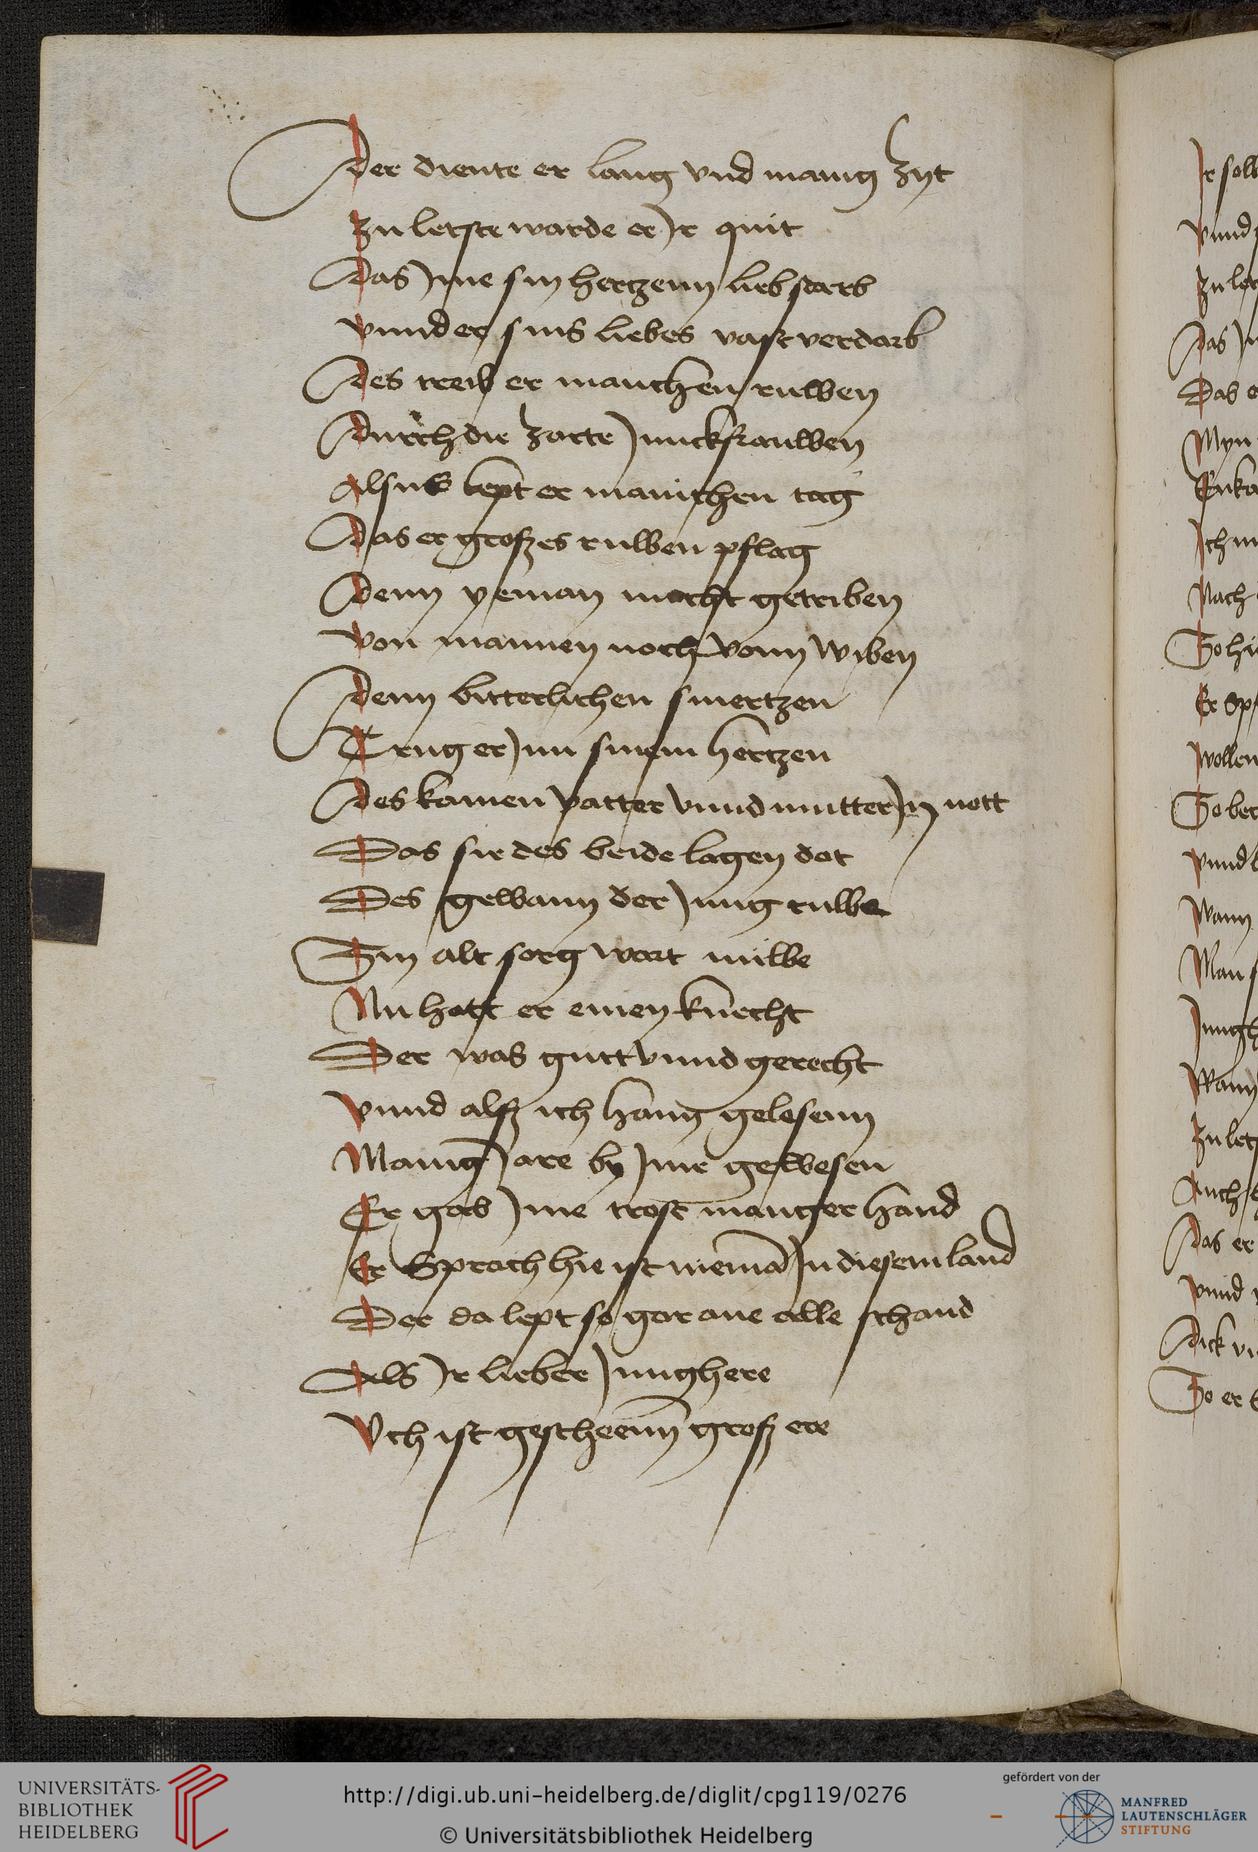 Der diente er lang vnd manig zyt
Zu letste warde er Jr quit
Das Jme sin hertzenn lieb starb
vnnd er sins liebes vast verdarb
Des treib er manchen ruwen
Durch die zarte Junckfrauwen
Alsus lept er manichen tag
Das er groszes ruwen pflag
Denn yeman mocht getriben
Von mannen noch vonn wiben
Denn bitterlichen smertzen
Trug er Jnn sinem hertzen
Des kamen vatter vnnd mutter Jn nott
Das sie des beide lagen dot
Des gewann der Jung ruwe
Sin alt sorg wart nuwe
Nu hatt er einen knecht
Der was gutt vnnd gerecht
Vnnd alsz ich hang gelesenn
Manig Jare by Jme gewesen
Er gab Jme trost manger hand
Er Sprach hie ist niemā Jn diesem land
Der da lept so gar ane alle schand
Als Jr lieber Junghere
Vch ist gescheenn grosz ere
Jr soll
vnnd
Zu let
Das J
Das e
Myn
Enka
Jch m
Nach
So hi
Er Sp
wollen
So ber
vnnd
Wann
Man s
Jungh
Wann
Zu let
Auch
Das er
vnnd
Dick vi
So er
UNIVERSITÄTS-
BIBLIOTHEK
HEIDELBERG
http://digi.ub.uni-heidelberg.de/diglit/cpg119/0276
© Universitätsbibliothek Heidelberg
gefördert von der
MANFRED
LAUTENSCHLÄGER
STIFTUNG